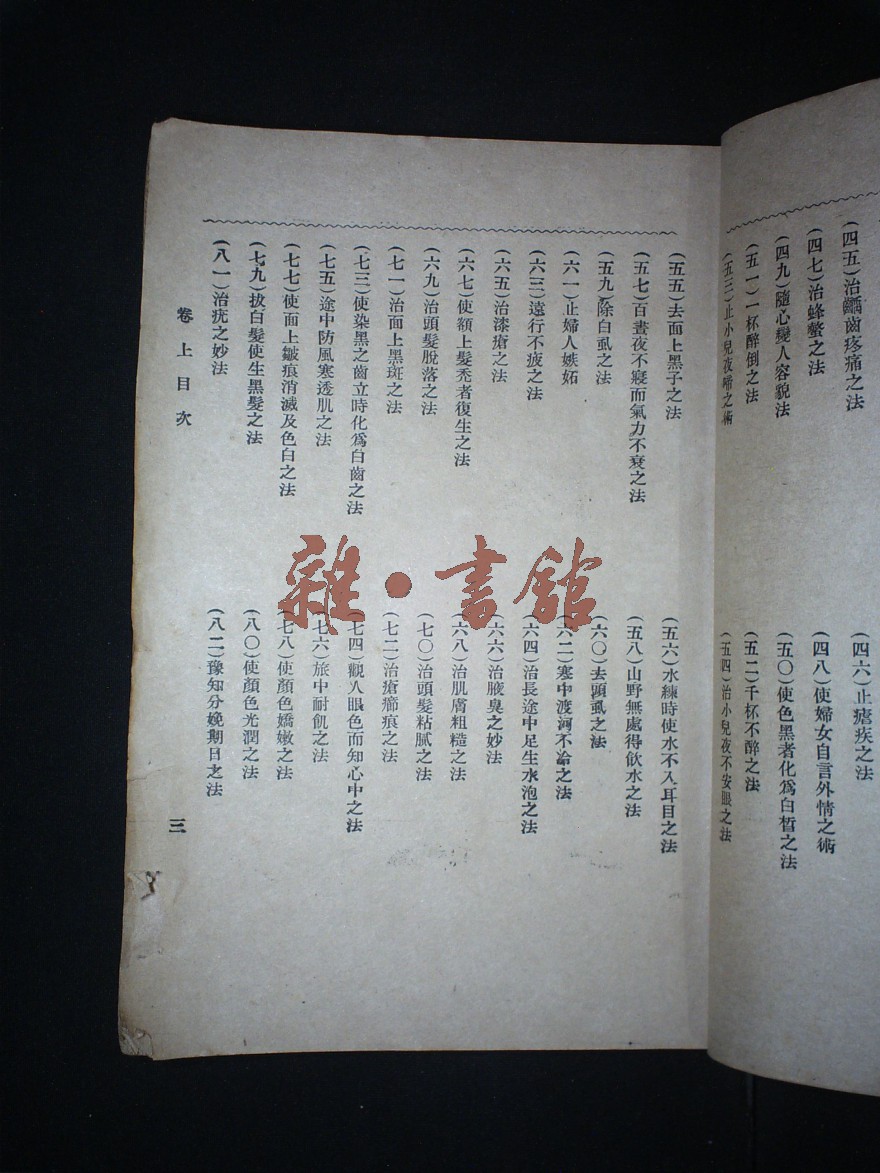 (四五)治齲齒疼痛之法
(四六)止瘧疾之法
(四七)治蜂螫之法
(四八)使婦女自言外情之術
(四九)隨心變人容貌法
(五〇)使色黑者化爲白皙之法
(五一)一杯醉倒之法
(五二)千杯不醉之法
(五三)止小兒夜啼之術
(五四)治小兒夜不安眠之法
(五五)去面上黑子之法
(五六)水練時使水不入耳目之法
(五七)百晝夜不寢而氣力不衰之法
(五八)山野無處得飲水之法
(五九)除白虱之法
(六〇)去頭虱之法
(六一)止婦人嫉妬
(六二)寒中渡河不冷之法
(六三)遠行不疲之法
(六四)治長途中足生水泡之法
(六五)治漆瘡之法
(六六)治腋臭之妙法
(六七)使額上髮禿者復生之法
(六八)治肌膚粗糙之法
(六九)治頭髮脫落之法
(七〇)治頭髮粘膩之法
(七一)治面上黑斑之法
(七二)治瘡癤痕之法
(七三)使染黑之齒立時化爲白齒之法
(七四)觀人眼色而知心中之法
(七五)途中防風寒透肌之法
(七六)旅中耐飢之法
(七七)使面上皺痕消滅及色白之法
(七八)使顏色嬌嫩之法
(七九)拔白髮使生黑髮之法
(八〇)使顏色光潤之法
(八一)治疣之妙法
(八二)豫知分娩期日之法
卷上目次
三
雜·書館